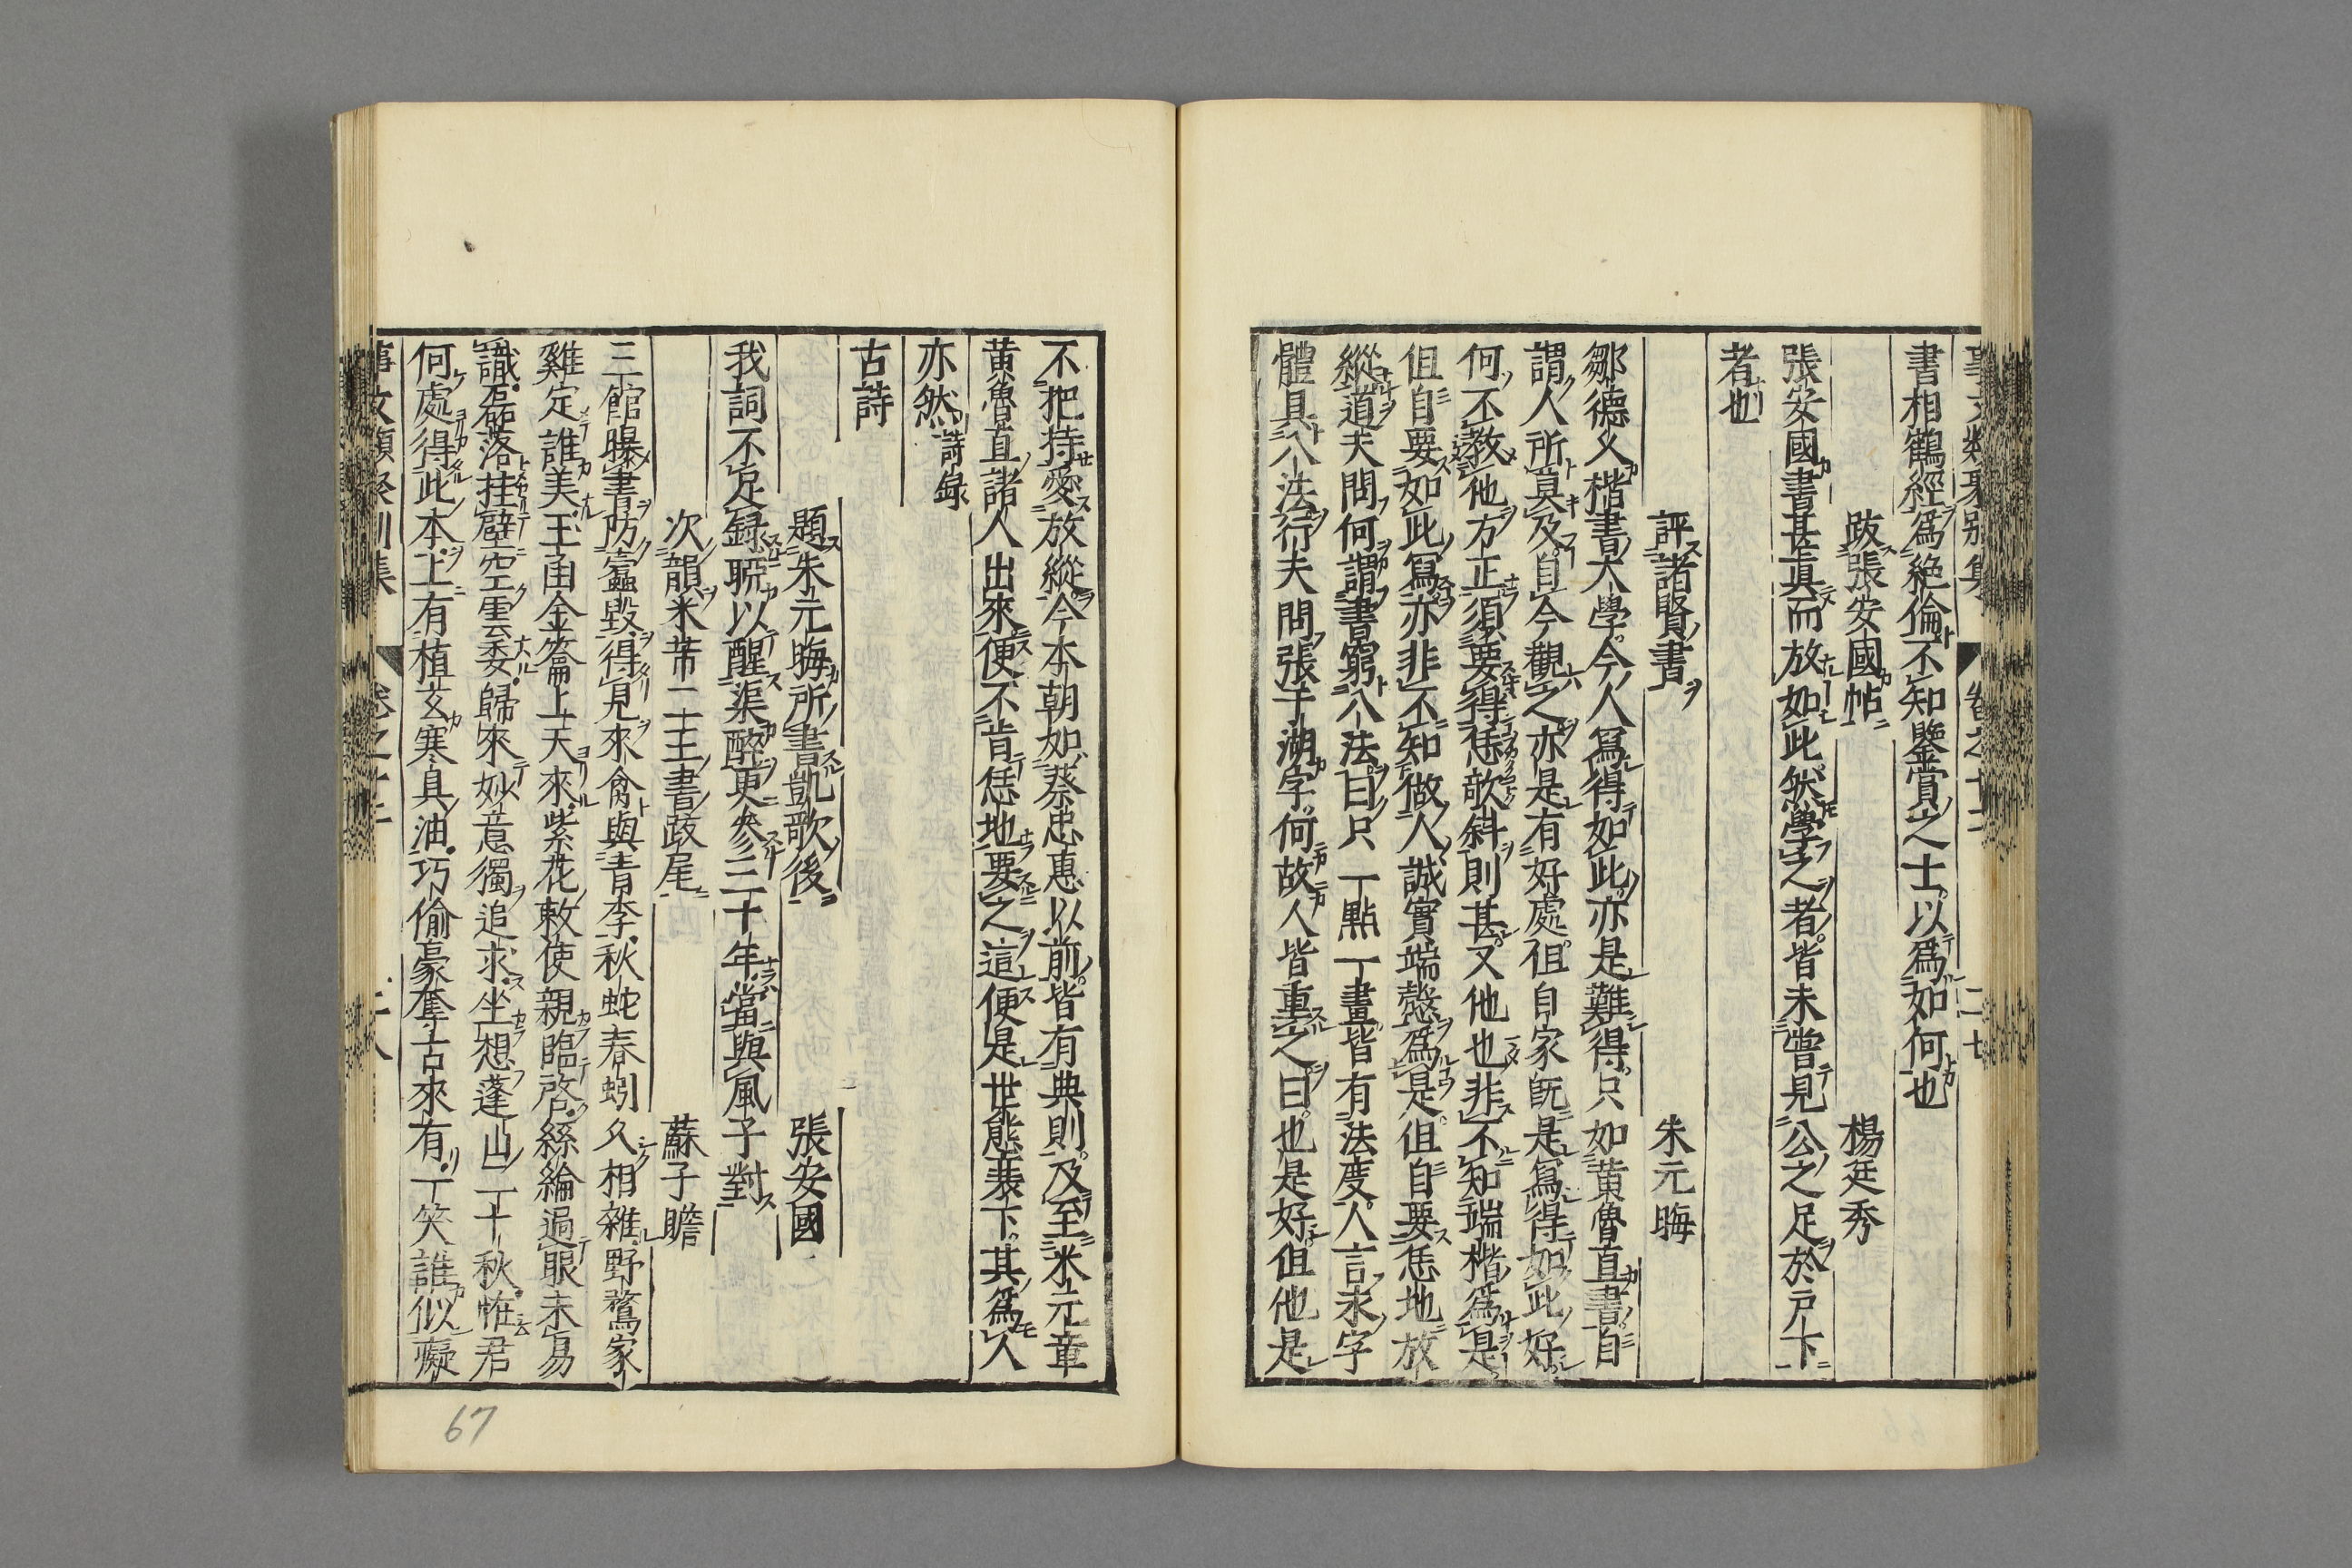 事文類聚別集 卷之十二 二十七
書相鶴經爲絶倫不知鑒賞之士以爲如何也
跋張安國帖 楊廷秀
張安國書甚眞而放如此然學之者皆未嘗見公之足於戸下
者也
評諸賢書 朱元晦
鄒德父楷書大學今人寫得如此亦是難得只如黄魯直書自
謂人所莫及自今觀之亦是有好處但自家既是寫得如此好
何不教他方正須要得恁欹斜則甚又他也非不知端楷爲是
但自要如此寫亦非不知做人誠實端慤爲是但自要恁地放
縱道夫問何謂書窮八法曰只一點一畫皆有法度人言永字
體具八法行夫問張于湖字何故人皆重之曰也是好但他是
不把持愛放縱今本朝如蔡忠惠以前皆有典則及至米元章
黄魯直諸人出來便不肯恁地要之這便是世態衰下其爲人
亦然 語録
古詩
題朱元晦所書凱歌後 張安國
我詞不足録聊以醒渠醉更參三十年當與風子對
次韻米芾二王書跋尾 蘇子瞻
三館曝書防蠹毀得見來禽與青李秋蛇春蚓久相雜野鶩家
雞定誰美玉函金籥上天來紫花敕使親臨啓絲綸過眼未易
識磊落挂壁空雲委歸來妙意獨追求坐想蓬山二十秋恠君
何處得此本上有植玄寒具油巧偷豪奪古來有一笑誰似癡
事文類聚別集 卷之十二 二十八
67